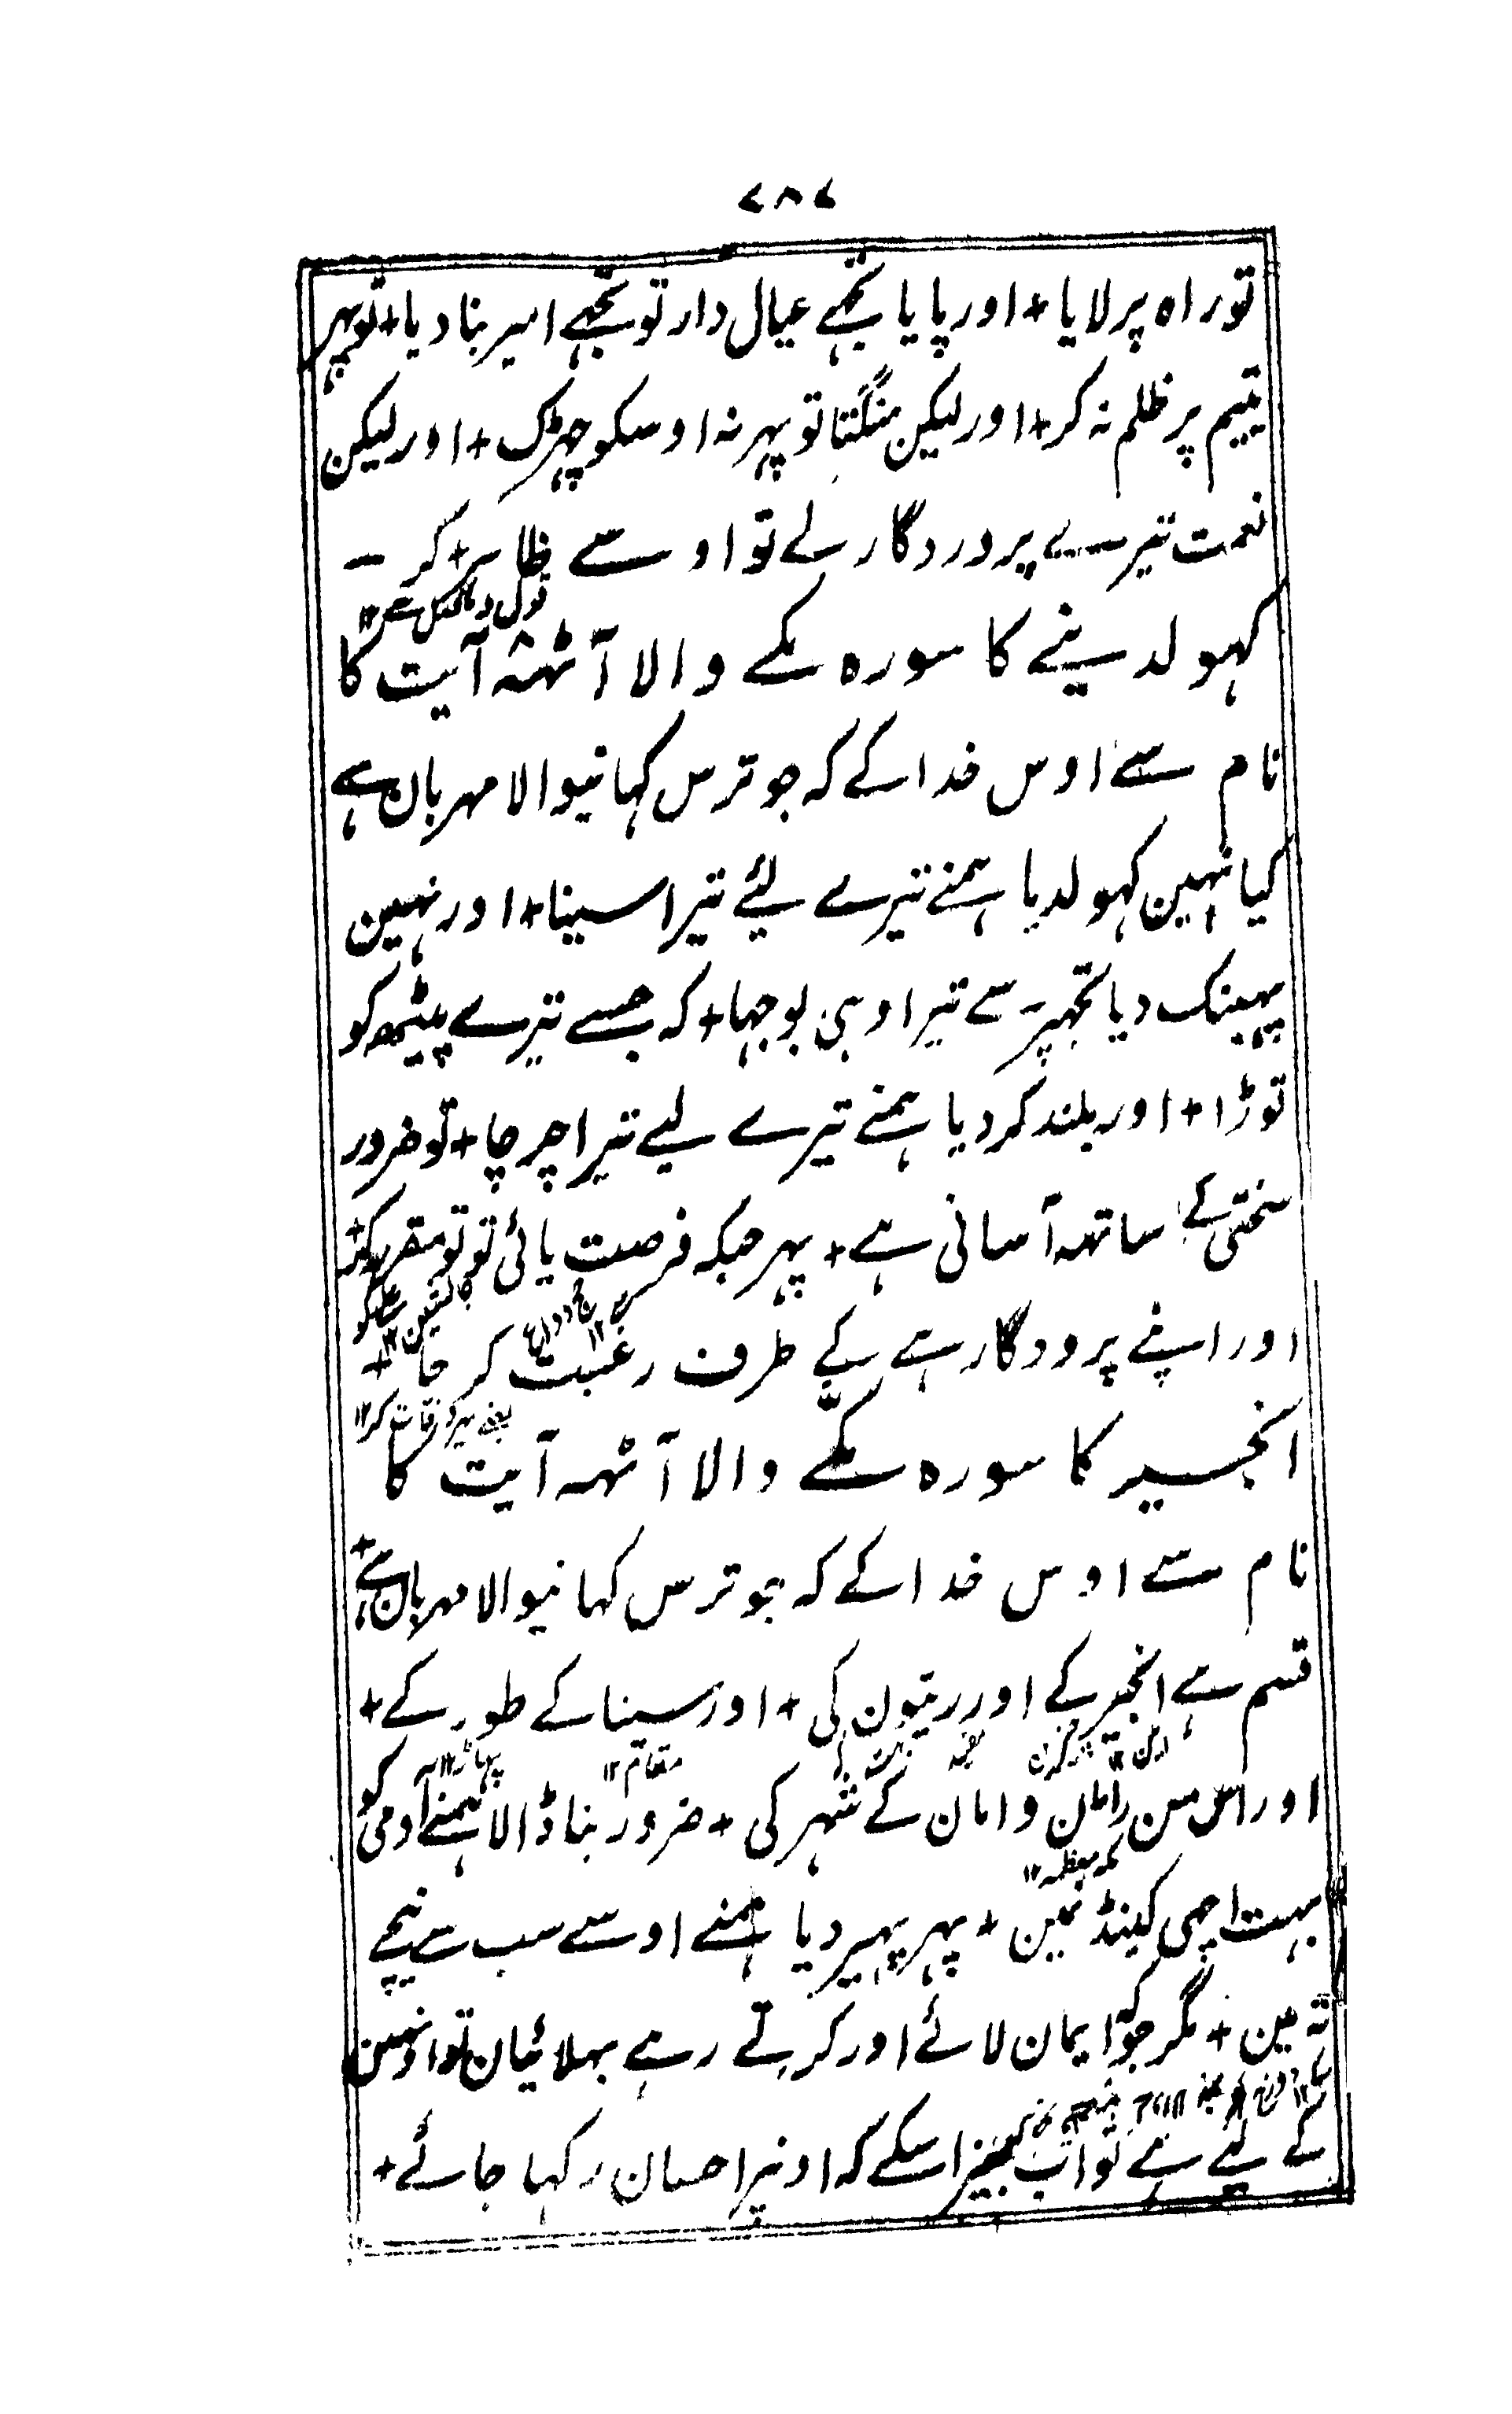 ۷۸۷
تو راہ پر لایا + اور پایا تجھے عیال دار تو تجھے امیر بنا دیا + تو پہر
یتیم پر ظلم نہ کر + اور لیکن منگتا تو پہر نہ اوسکو جہڑک + اور لیکن
نعمت تیرے پروردگار کے تو اوسے ظاہر کر —
کہولدینے کا سورہ مکے والا آٹہہ آیت کا
نام سے اوس خدا کے کہ جو ترس کہانیوالا مہربان ہے
کیا نہین کہولدیا ہمنے تیرے لئے تیرا سینا + اور نہین
پہینک دیا تجہپر سے تیرا وہی بوجہا + کہ جسے تیرے پیٹھ کو
توڑا + اور بلند کردیا ہمنے تیرے لیے تیرا چرچا + تو ضرور
سختی کے ساتہہ آسانی ہے + پہر جبکہ فرصت پائی تو تو مقرر کر
اور اپنے پرودگار ہے کے طرف رغبت کر جا +
انجیر کا سورہ مکّے والا آٹہہ آیت کا
نام سے اوس خدا کے کہ جو ترس کہانیوالا مہربان ہے +
قسم ہے انجیر کے اور زیتون کی + اور سینا کے طور کے +
مقام ۱۲ پہاڑ ۱۲
اور اس امن وامان کے شہر کی + ضرور بنا ڈالا ہمنے آدمی کو
مکہ معظمہ ۱۲
بہت اچہی کینڈمین + پہر پہیر دیا ہمنے اوسے سب سے نیچے
تہ مین + مگر جو ایمان لائے اور کرتے رہے بہلائیان تو اونہین
کے لیے ہے ثواب بغیر اسکے کہ اونپر احسان رکہا جائے +